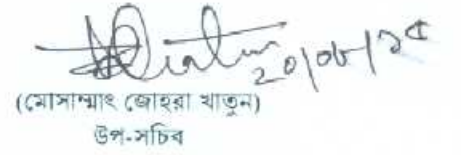 ২০/০৮/২৫
(মোসাম্মাৎ জোহরা খাতুন)
উপ-সচিব